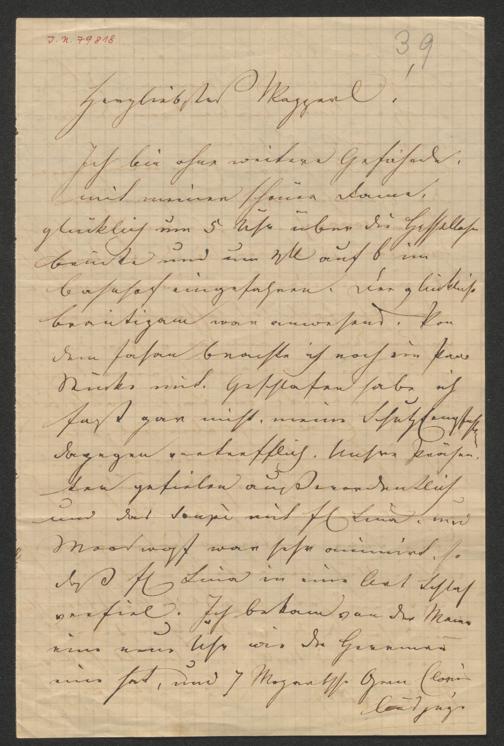 J. N. 79818
39
1
Herzliebstes Mapperl!
Ich bin ohne weitere Gefährde,
mit meiner schönen Dame,
glücklich um 5 Uhr über die
brücke und um auf 6 im
Bahnhof eingefahren. Der glückliche
bräutigam war anwesend. Von
dem Fasan brachte ich noch ein Paar
Stücke mit. Geschlafen habe ich
fast gar nicht, meine
dagegen vortrefflich. Unsre Präsen-
ten gefielen außerordentlich
und das Soupé mit Frl Lina. und
war sehr animirt, so
daß Frl Lina in eine Art Schlaf
verfiel. Ich bekam von der Mama
eine neue Uhr wie die
eine hat, und 7